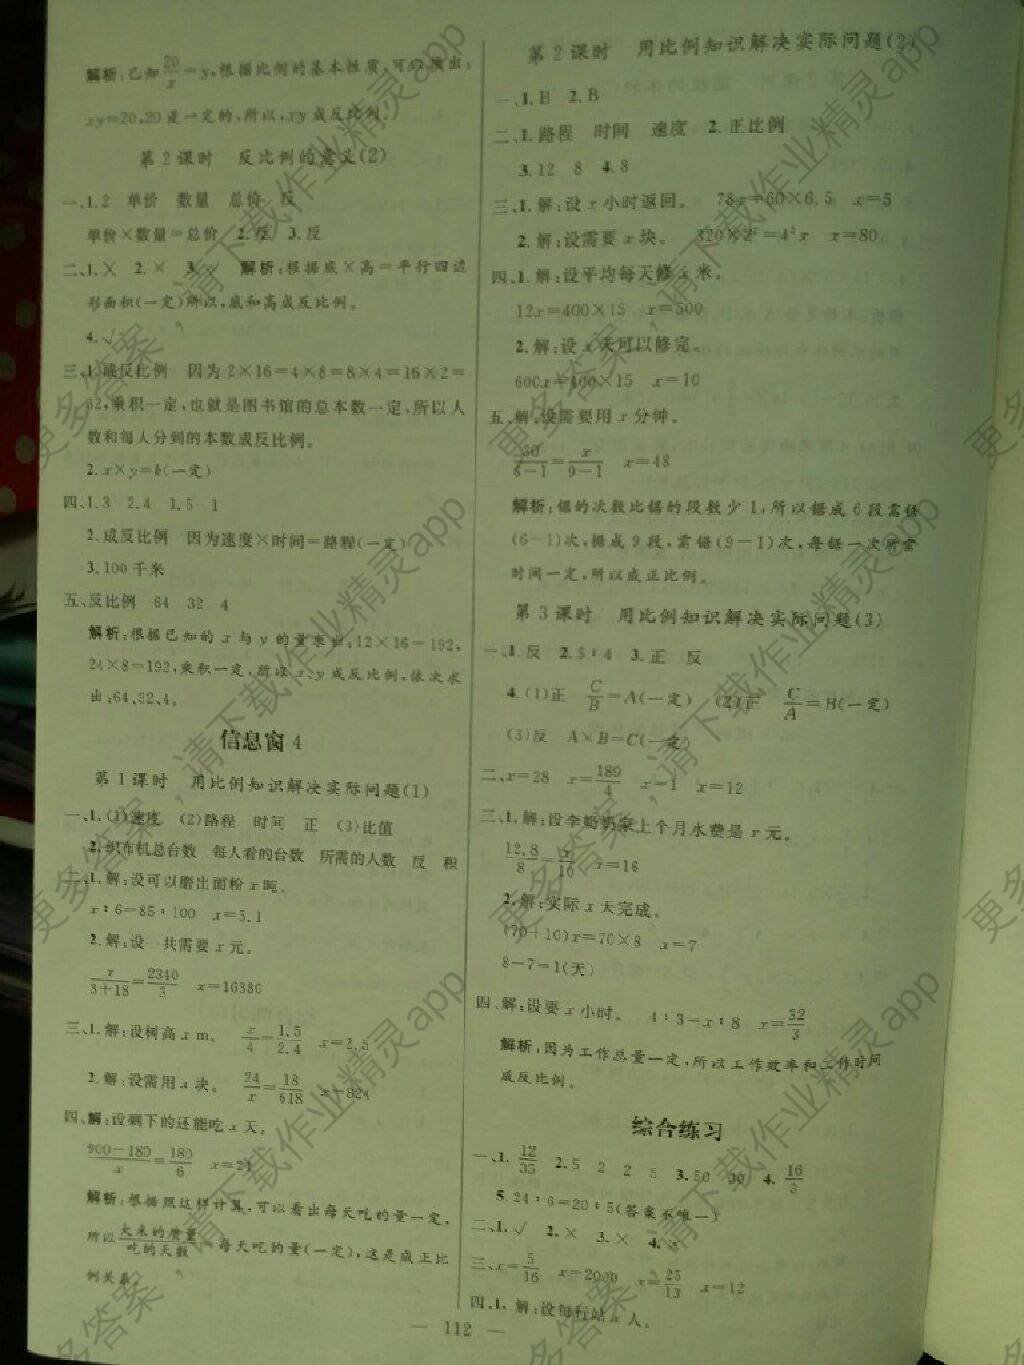 解析:已知20/x=y,根据比例的基本性质,可以演出:
xy=20,20是一定的,所以,xy成反比例。
第2课时 反比例的意义(2)
一、1.2 单价 数量 总价 反
单价×数量=总价 2.反 3.反
二、1.× 2.× 3.√ 解析:根据底×高=平行四边
形面积(一定)所以,底和高成反比例。
4.√
三、1.成反比例 因为2×16=4×8=8×4=16×2=
32,乘积一定,也就是图书馆的总本数一定,所以人
数和每人分到的本数成反比例。
2.x×y=k(一定)
四、1.3 2.4 1.5 1
2.成反比例 因为速度×时间=路程(一定)
3.100千米
五、反比例 64 32 4
解析:根据已知的x与y的量求出,12×16=192,
24×8=192,乘积一定,所以x、y成反比例,依次求
出:64、32、4。
信息窗4
第1课时 用比例知识解决实际问题(1)
一、1.(1)速度 (2)路程 时间 正 (3)比值
2.织布机总台数 每人看的台数 所需的人数 反 积
二、1.解:设可以磨出面粉x吨。
x∶6=85∶100 x=5.1
2.解:设一共需要x元。
x/(3+18)=2340/3 x=16380
三、1.解:设树高x m。 x/4=1.5/2.4 x=2.5
2.解:设需用x块。 24/x=18/618 x=824
四、解:设剩下的还能吃x天。
(900-180)/x=180/6 x=24
解析:根据照这样计算,可以看出每天吃的量一定,
所以大米的质量/吃的天数=每天吃的量(一定),这是成正比
例关系。
第2课时 用比例知识解决实际问题(2)
一、1.B 2.B
二、1.路程 时间 速度 2.正比例
3.12 8 4.8
三、1.解:设x小时返回。 78x=60×6.5 x=5
2.解:设需要x块。 320×2²=4²x x=80
四、1.解:设平均每天修x米。
12x=400×15 x=500
2.解:设x天可以修完。
600x=400×15 x=10
五、解:设需要用x分钟。
30/(6-1)=x/(9-1) x=48
解析:锯的次数比锯的段数少1,所以锯成6段需锯
(6-1)次,据成9段,需锯(9-1)次,每锯一次所需
时间一定,所以成正比例。
第3课时 用比例知识解决实际问题(3)
一、1.反 2.5∶4 3.正 反
4.(1)正 C/B=A(一定) (2)正 C/A=B(一定)
(3)反 A×B=C(一定)
二、x=28 x=189/4 x=1 x=12
三、1.解:设李奶奶家上个月水费是x元。
12.8/8=x/10 x=16
2.解:实际x天完成。
(70+10)x=70×8 x=7
8-7=1(天)
四、解:设要x小时。 4∶3=x∶8 x=32/3
解析:因为工作总量一定,所以工作效率和工作时间
成反比例。
综合练习
一、1.12/35 2.5 2 2 5 3.50 30 4.16/3
5.24∶6=20∶5(答案不唯一)
二、1.√ 2.× 3.× 4.
三、x=5/16 x=2000 x=25/13 x=12
四、1.解:设每行站x人。
— 112 —
更多答案,请下载作业精灵app